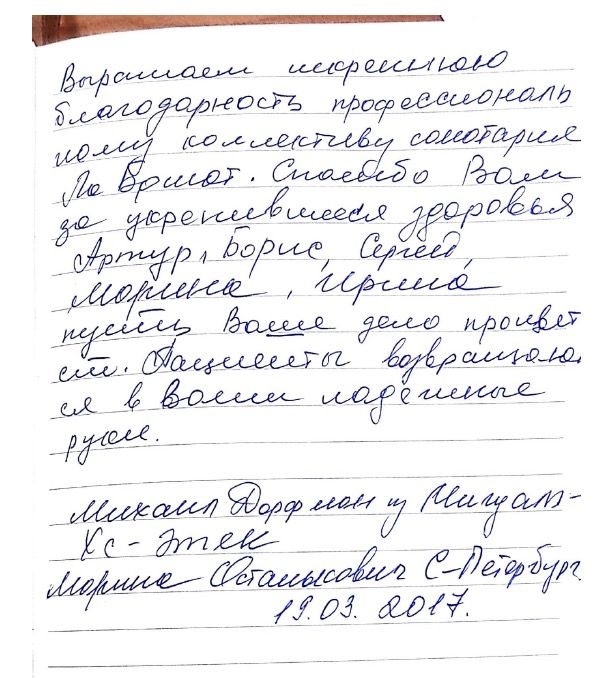 Выражаем искреннюю
благодарность профессиональ
ному коллективу санатория
Ла Вриат. Спасибо Вам
за укрепившееся здоровья
Артур, Борис, Сергей,
Марина, Ирина
пусть Ваше дело процвет
ет. Пациенты возвращаю
ся в Ваши надежные
руки.
Михаил Дорфман из
Хс-Этек
Марина Останькович С-Петербург
19.03.2017.